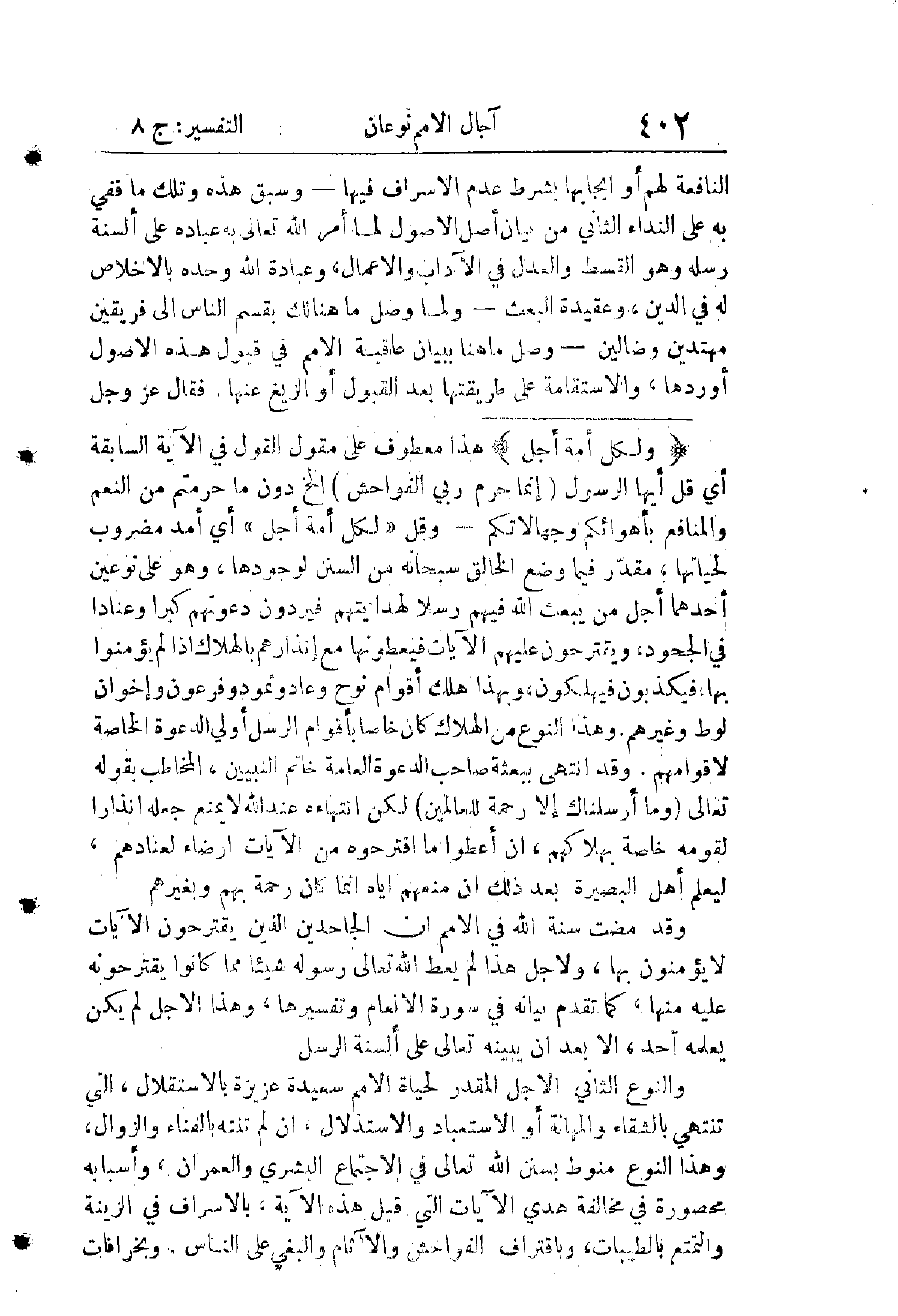 ٤٠٢ آجال الامم نوعان التفسير: ج ٨
النافعة لهم أو ايجابها بشرط عدم الاسراف فيها — وسبق هذه وتلك ما قفي
به على النداء الثاني من بيان أصل الاصول لمـا أمر الله تعالى به عباده على ألسنة
رسله وهو القسط والعدل في الآداب والاعمال، وعبادة الله وحده بالاخلاص
له في الدين ، وعقيدة البعث — ولمـا وصل ما هنالك بقسم الناس الى فريقين
مهتدين وضالين — وصل ماهنا ببيان عاقبة الامم في قبول هـذه الاصول
أوردها ، والاستقامة على طريقتها بعد القبول أو الزيغ عنها . فقال عز وجل
﴿ ولـكل أمة أجل ﴾ هذا معطوف على مقول القول في الآية السابقة
أي قل أيها الرسول ( إنما حرم ربي الفواحش ) الخ دون ما حرمتم من النعم
والمنافع بأهوائكم وجهالاتكم — وقل « لـكل أمة أجل » أي أمد مضروب
لحياتها ، مقدّر فيما وضع الخالق سبحانه من السنن لوجودها ، وهو على نوعين
أحدهما أجل من يبعث الله فيهم رسلا لهدايتهم فيردون دعوتهم كبرا وعنادا
في الجحود، ويقترحون عليهم الآيات فيعطونها مع إنذارهم بالهلاك اذا لم يؤمنوا
بها، فيكذبون فيهلكون، وبهذا هلك أقوام نوح وعاد وثمود وفرعون وإخوان
لوط وغيرهم. وهذا النوع من الهلاك كان خاصا بأقوام الرسل أولي الدعوة الخاصة
لاقوامهم . وقد انتهى ببعثة صاحب الدعوة العامة خاتم النبيين ، المخاطب بقوله
تعالى (وما أرسلناك إلا رحمة للعالمين) لكن انتهاءه عند الله لا يمنع جعله انذارا
لقومه خاصة بهلاكهم ، ان أعطوا ما اقترحوه من الآيات ارضاء لعنادهم ،
ليعلم أهل البصيرة بعد ذلك ان منعهم اياه انما كان رحمة بهم وبغيرهم
وقد مضت سنة الله في الامم ان الجاحدين الذين يقترحون الآيات
لا يؤمنون بها ، ولاجل هذا لم يعط الله تعالى رسوله شيئا مما كانوا يقترحونه
عليه منها ، كما تقدم بيانه في سورة الانعام وتفسيرها ، وهذا الاجل لم يكن
يعلمه أحد ، الا بعد ان يبينه تعالى على ألسنة الرسل
والنوع الثاني الاجل المقدر لحياة الامم سعيدة عزيزة بالاستقلال ، التي
تنتهي بالشقاء والمهانة أو الاستعباد والاستذلال ، ان لم تنته بالفناء والزوال،
وهذا النوع منوط بسنن الله تعالى في الاجتماع البشري والعمران ، وأسبابه
محصورة في مخالفة هدي الآيات التي قبل هذه الآية ، بالاسراف في الزينة
والتمتع بالطيبات، وباقتراف الفواحش والآثام والبغي على النـاس . وبخرافات